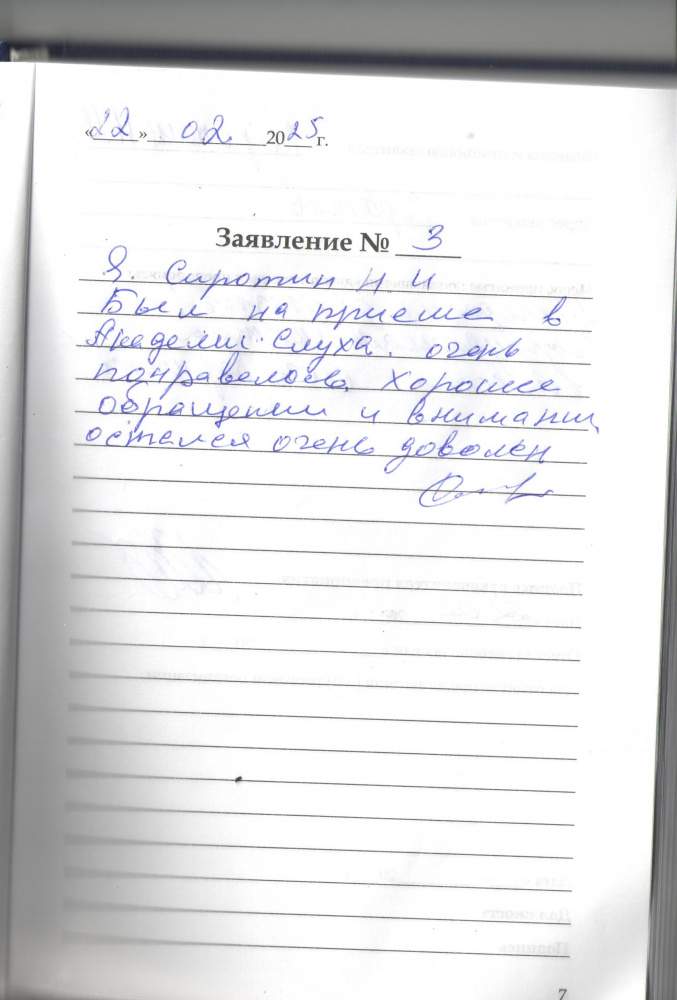 «22» 02 2025 г.
Заявление № 3
Я. Сиротин Н И
Был на приеме в
Академии Слуха. очень
понравелось, хорошее
обращении и внимании
остался очень доволен
7